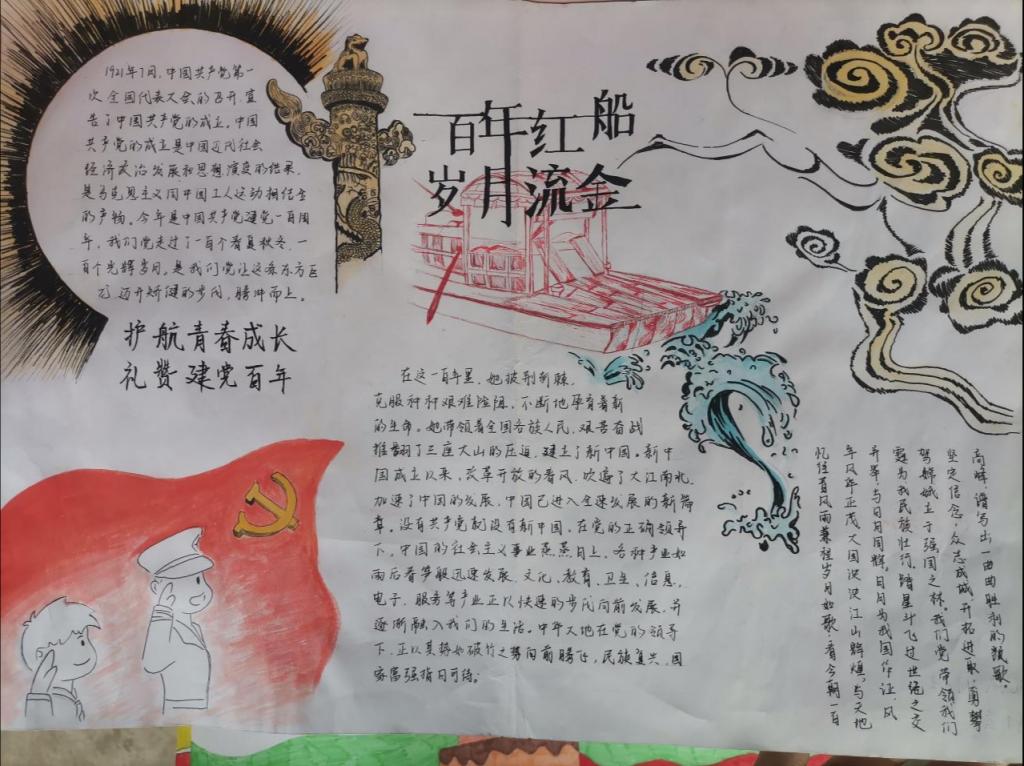 1921年7月,中国共产党第一
次全国代表大会的召开,宣
告了中国共产党的成立。中国
共产党的成立是中国近代社会
经济政治发展和思想演变的结果,
是马克思主义同中国工人运动相结合
的产物。今年是中国共产党建党一百周
年,我们党走过了一百个春夏秋冬,一
百个光辉岁月。是我们党让这条东方巨
龙,迈开矫健的步伐,腾冲而上。
护航青春成长
礼赞建党百年
百年红船
岁月流金
在这一百年里,她披荆斩棘,
克服种种艰难险阻,不断地孕育着新
的生命。她带领着全国各族人民,艰苦奋战
推翻了三座大山的压迫,建立了新中国。新中
国成立以来,改革开放的春风,吹遍了大江南北,
加速了中国的发展,中国已进入全速发展的新篇
章。没有共产党就没有新中国。在党的正确领导
下,中国的社会主义事业蒸蒸日上。各种产业如
雨后春笋般迅速发展,文化、教育、卫生、信息、
电子、服务等产业正以快速的步伐向前发展,并
逐渐融入我们的生活。中华大地在党的领导
下,正以其势如破竹之势向前腾飞,民族复兴,国
家富强指日可待。
高峰,谱写出一曲曲胜利的颂歌。
坚定信念,众志成城,开拓进取,勇攀
驾嫦娥立于强国之林。我们党带领我们
霆为我民族壮行,踏星斗飞过世纪之交
并举,与日月同辉,句句为我国作证,风
年风华正茂大国泱泱江山辉煌,与天地
忆往昔风雨兼程岁月如歌,看今朝一百